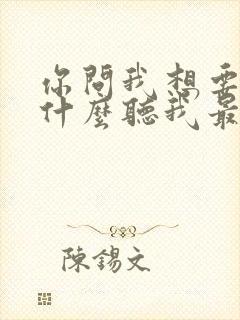 你問我想要
什麼聽我最
陳錫文